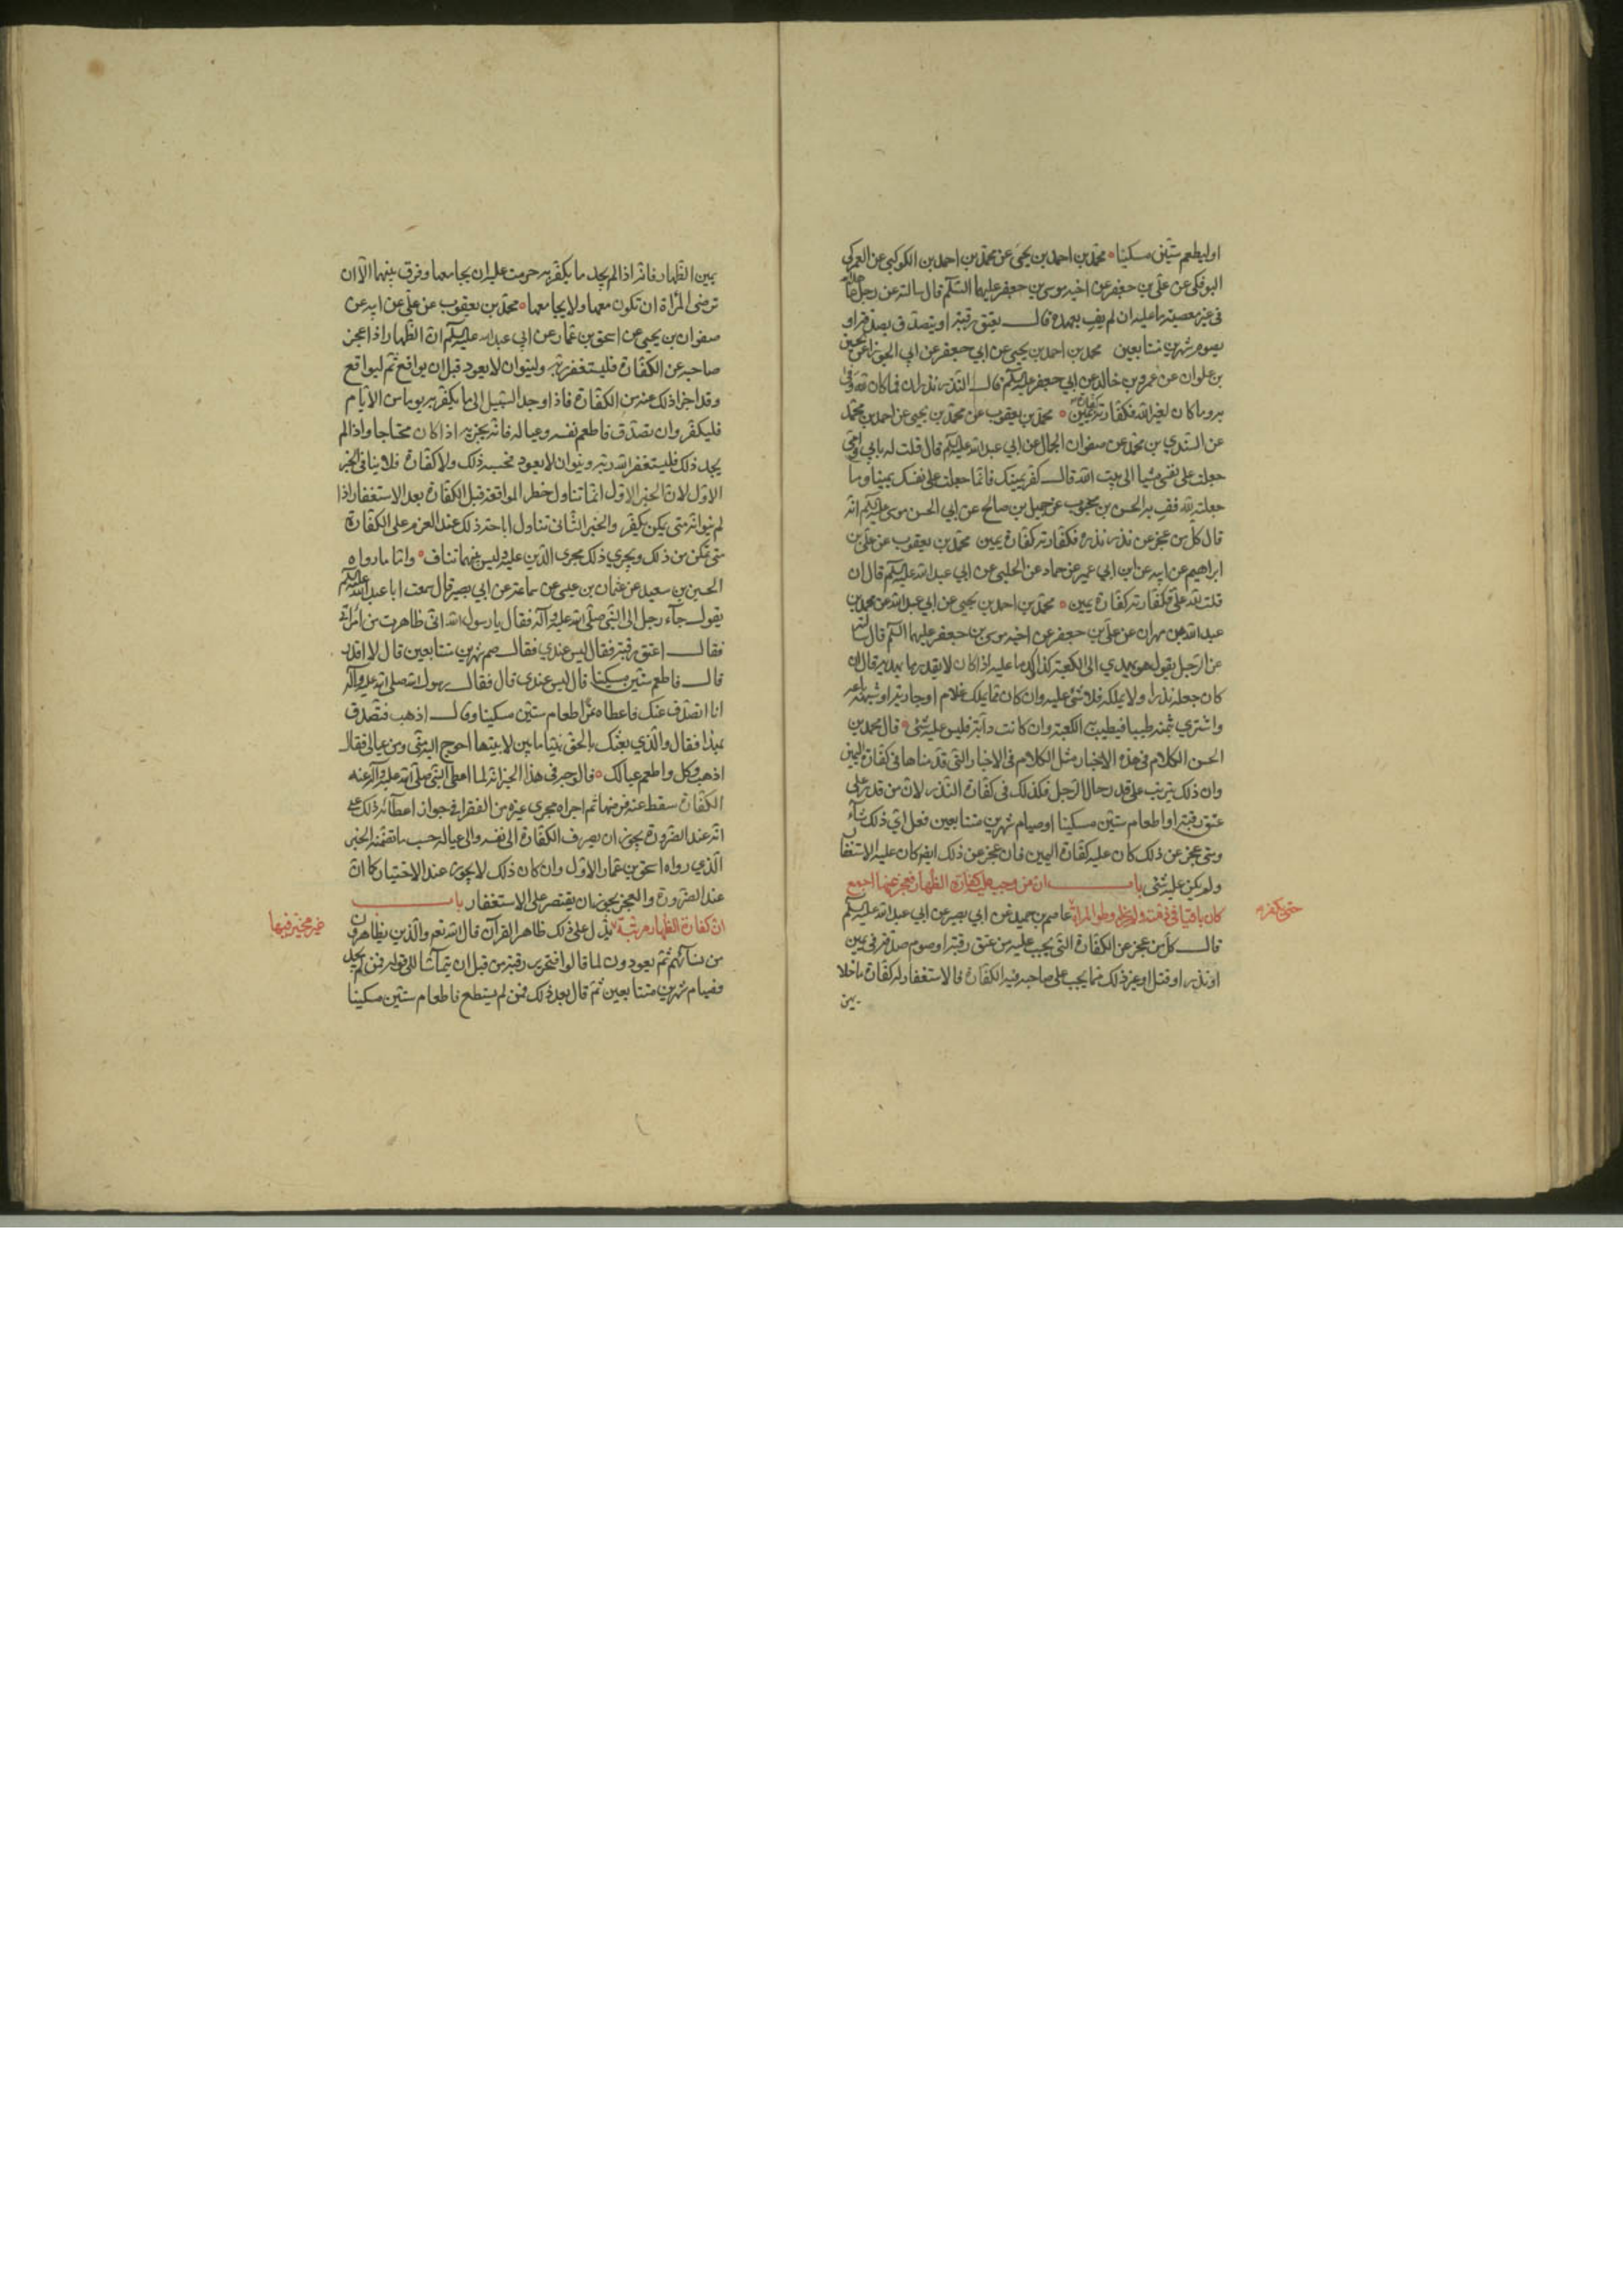 او ليطعم ستين مسكينا محمد بن احمد بن يحيى عن محمد بن احمد بن الكوكبي عن العمركي
البوفكي عن علي بن جعفر عن اخيه موسى بن جعفر عليهما السلم قال سالته عن رجل عاهد الله
فى غير معصية ما عليه ان لم يف بعهده قال يعتق رقبة او يتصدق بصدقة او
يصوم شهرين متتابعين محمد بن احمد بن يحيى عن ابي جعفر عن ابي الجوزا عن الحسين
بن علوان عن عمرو بن خالد عن ابي جعفر عليه السلم قال النذر نذران فما كان لله وفى
به وما كان لغير الله فكفارته كفارة يمين محمد بن يعقوب عن محمد بن يحيى عن احمد بن محمد
عن السندي بن محمد عن صفوان الجمال عن ابي عبد الله عليه السلم قال قلت له بابي وامي
جعلت على نفسي مشيا الى بيت الله قال كفر يمينك فانما جعلت على نفسك يمينا وما
جعلته لله فف به الحسن بن محبوب عن جميل بن صالح عن ابي الحسن موسى عليه السلم انه
قال كل من عجز عن نذر نذره فكفارته كفارة يمين محمد بن يعقوب عن علي بن
ابراهيم عن ابيه عن ابن ابي عمير عن حماد عن الحلبي عن ابي عبد الله عليه السلم قال ان
قلت لله علي فكفارته كفارة يمين محمد بن احمد بن يحيى عن ابي عبد الله عن محمد بن
عبد الله بن مهران عن علي بن جعفر عن اخيه موسى بن جعفر عليهما السلم قال سالته
عن الرجل يقول هو يهدي الى الكعبة كذا وكذا ما عليه اذا كان لا يقدر بما يهديه قال ان
كان جعله نذرا ولا يملكه فلا شئ عليه وان كان مما يملك غلام او جارية او شبهه باعه
واشترى بثمنه طيبا فيطيب به الكعبة وان كانت دابة فليس عليه شئ قال محمد بن
الحسن الكلام فى هذه الاخبار مثل الكلام فى الاخبار التى قدمناها فى كفارة اليمين
وان ذلك يترتب على قدر حال الرجل فكذلك فى كفارة النذر لان من قدر على
عتق رقبة او اطعام ستين مسكينا او صيام شهرين متتابعين فعل اي ذلك شآء
ومتى عجز عن ذلك كان عليه كفارة اليمين فان عجز عن ذلك ايضا كان عليه الاستغفار
ولم يكن عليه شئ باب ان من وجب عليه كفارة الظهار فعجز عنها اجمع
كان باقيا فى ذمته ولم يجز له وطو المراة عاصم بن حميد عن ابي بصير عن ابي عبد الله عليه السلم
حتى يكفر
قال كل من عجز عن الكفارة التى يجب عليه من عتق رقبة او صوم صدقة فى يمين
او نذر او قتل او غير ذلك مما يجب على صاحبه فيه الكفارة فالاستغفار له كفارة ما خلا
يمين
يمين الظهار فانه اذا لم يجد ما يكفر به حرمت عليه ان يجامعها وفرق بينهما الا ان
ترضى المراة ان تكون معها ولا يجامعها محمد بن يعقوب عن علي عن ابيه عن
صفوان بن يحيى عن اسحق بن عمار عن ابي عبد الله عليه السلم ان الظهار اذا عجز
صاحبه عن الكفارة فليستغفر ربه ولينو ان لا يعود قبل ان يواقع ثم ليواقع
وقد اجزا ذلك عنه من الكفارة فاذا وجد السبيل الى ما يكفر به يوما من الايام
فليكفر وان تصدق فاطعم نفسه وعياله فانه يجزيه اذا كان محتاجا واذا لم
يجد ذلك فليستغفر الله ربه وينوى ان لا يعود فحسبه ذلك ولا كفارة فلا ينافى الخبر
الاول لان الخبر الاول انما تناول حظر المواقعة قبل الكفارة بعد الاستغفار اذا
لم ينو انه متى يكن يكفر والخبر الثانى تناول اباحة ذلك عند العزم على الكفارة
متى تمكن من ذلك ويجري ذلك مجرى الدين عليه وليس بينهما تناف واما ما رواه
الحسين بن سعيد عن عثمان بن عيسى عن سماعة عن ابي بصير قال سمعت ابا عبد الله عليه السلم
يقول جآء رجل الى النبي صلى الله عليه وآله فقال يا رسول الله انى ظاهرت من امراتي
فقال اعتق رقبة فقال ليس عندي فقال صم شهرين متتابعين قال لا اقدر
قال فاطعم ستين مسكينا قال ليس عندى قال فقال رسول الله صلى الله عليه وآله
انا اتصدق عنك فاعطاه تمرا اطعام ستين مسكينا وقال اذهب فتصدق
بهذا فقال والذي بعثك بالحق نبيا ما بين لابيتها احوج اليه منى ومن عيالى فقال
اذهب وكل واطعم عيالك فالوجه فى هذا الخبر انه لما اعطى النبي صلى الله عليه وآله عنه
الكفارة سقط عنه فرضها ثم اجراه مجرى غيره من الفقرا فى جواز اعطائه ذلك على
انه عند الضرورة يجوز ان يصرف الكفارة الى نفسه والى عياله حسب ما تضمنه الخبر
الذي رواه اسحق بن عمار الاول وان كان ذلك لا يجوز عند الاختيار كما ان
عند الضرورة والعجز يجوز ان يقتصر على الاستغفار باب
ان كفارة الظهار مرتبة يدل على ذلك ظاهر القرآن قال الله تعم والذين يظاهرون
غير مخير فيها
من نسآئهم ثم يعودون لما قالوا فتحرير رقبة من قبل ان يتماسا الى قوله فمن لم يجد
فصيام شهرين متتابعين ثم قال بعد ذلك فمن لم يستطع فاطعام ستين مسكينا